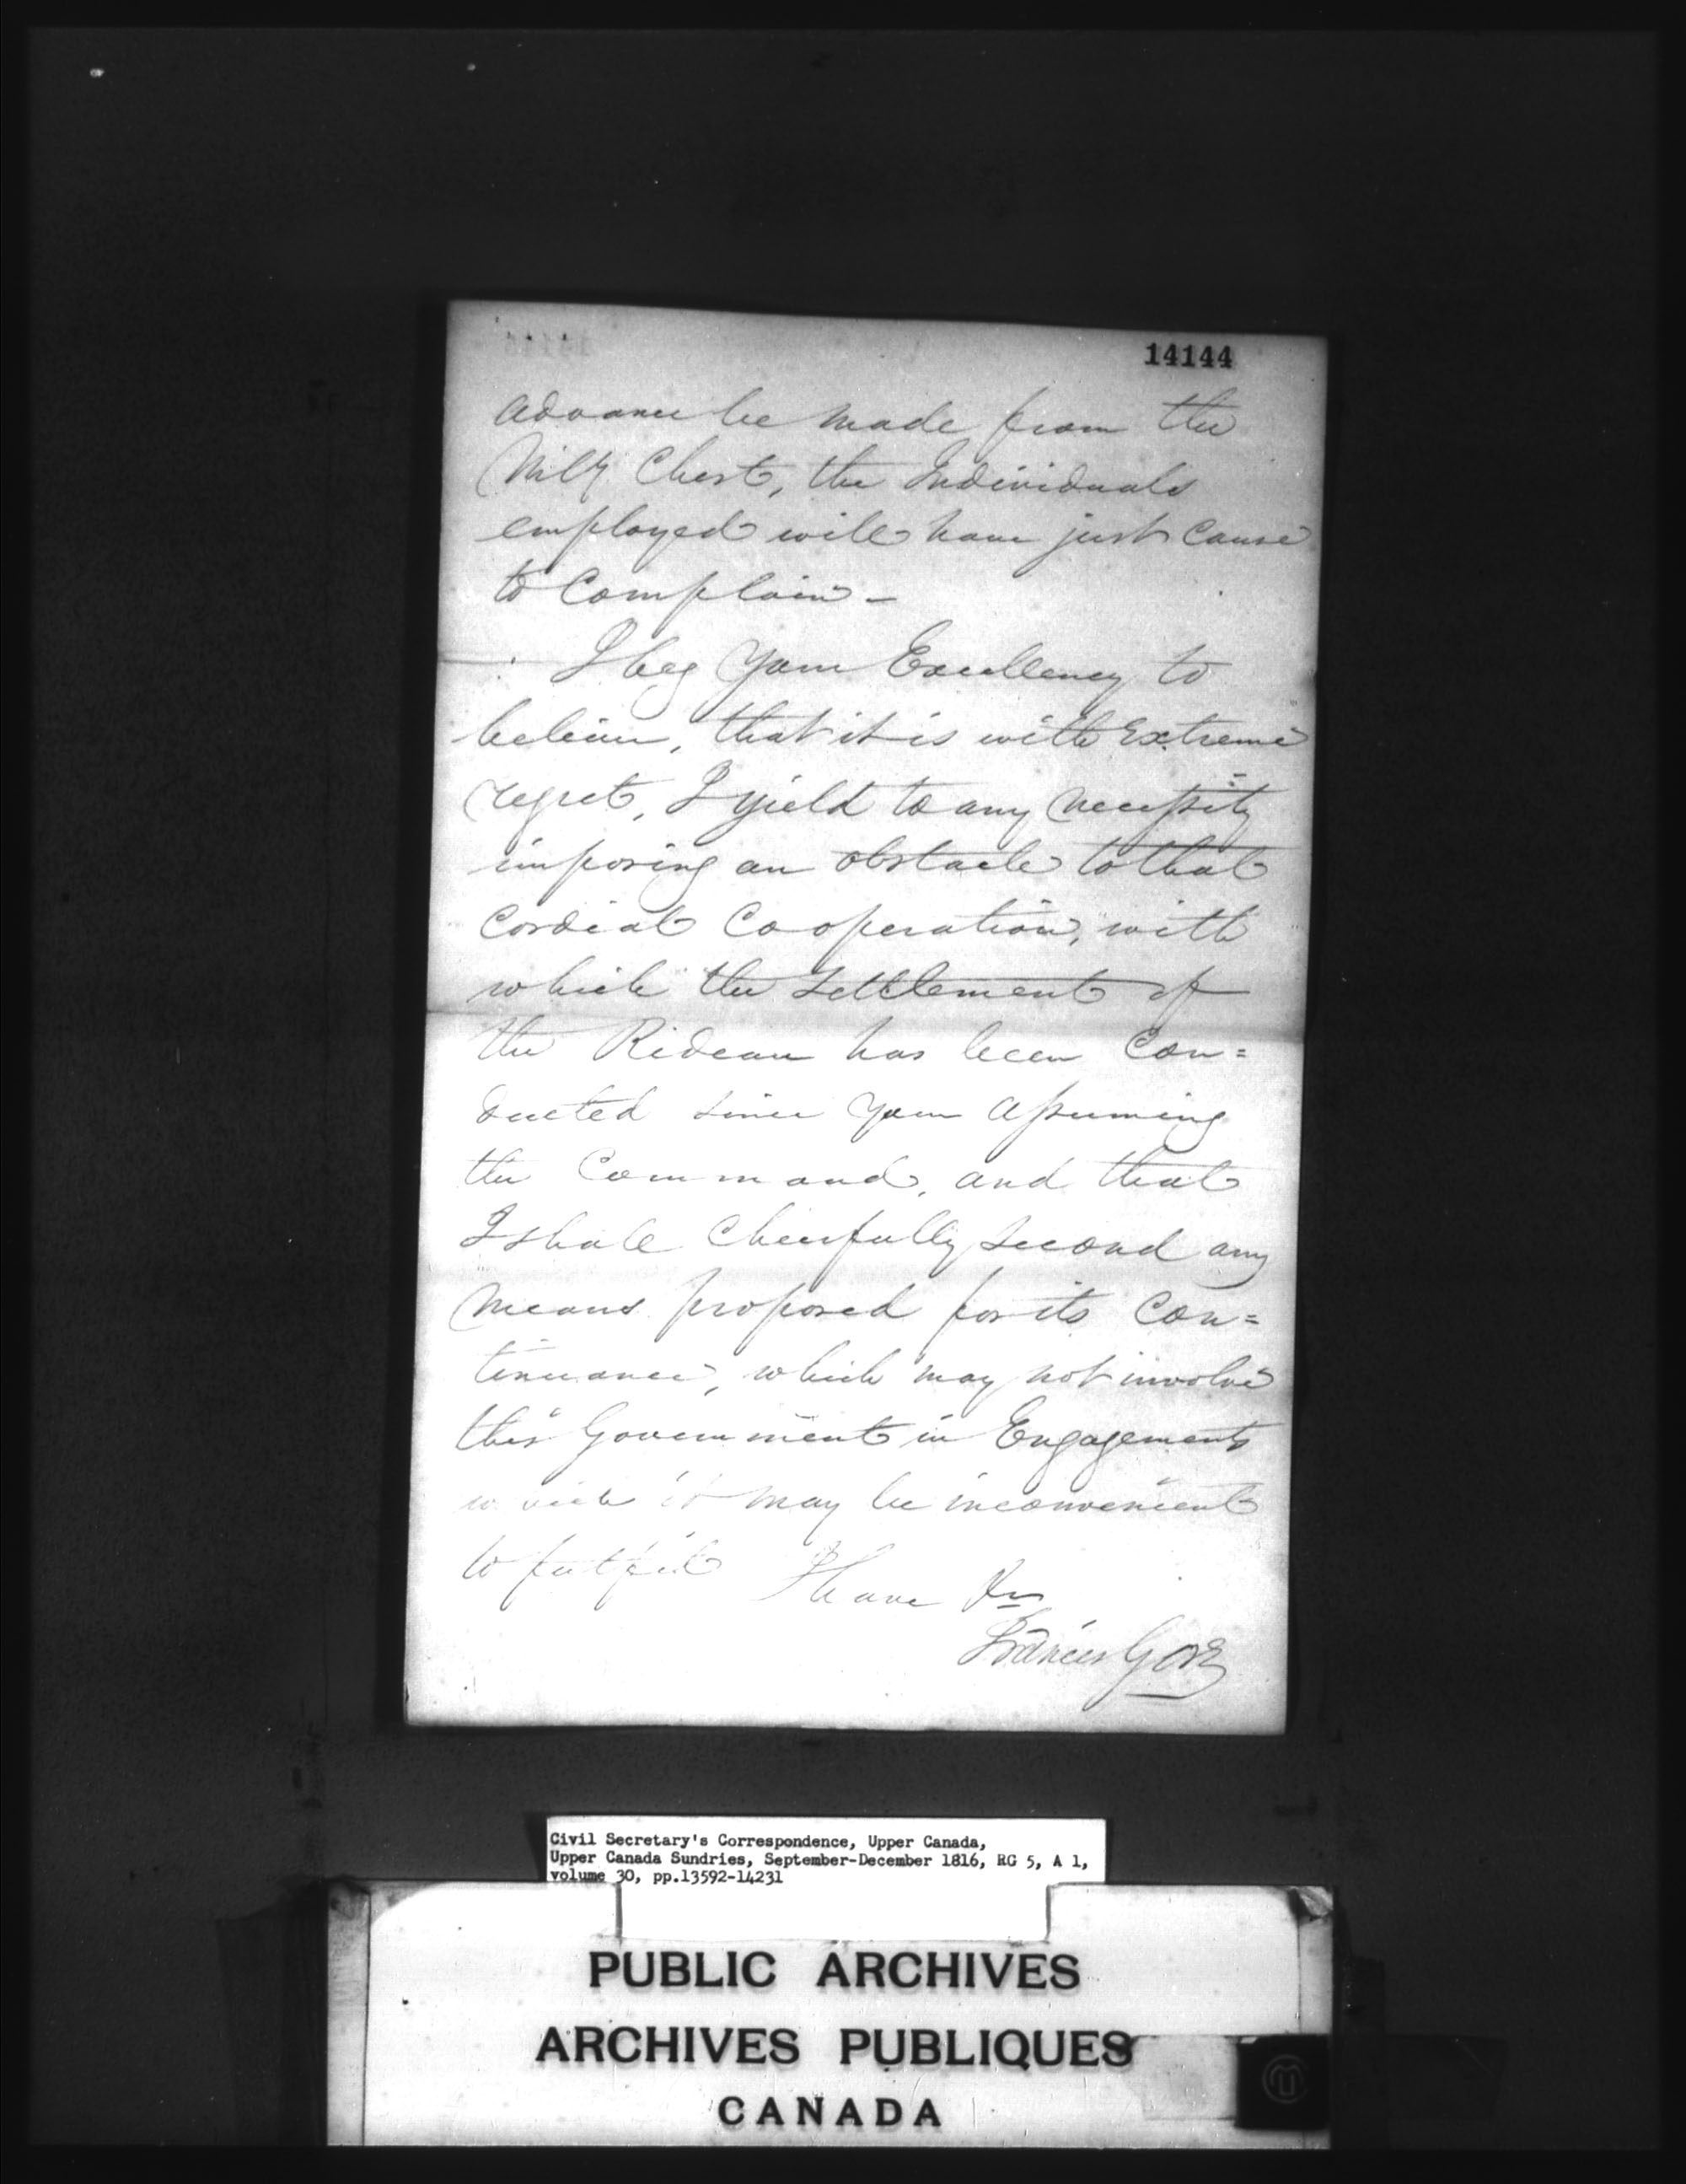 14144
advance be made from the
Mily Chest, the Individuals
employed will have just cause
to Complain -
I beg Your Excellency to
believe, that it is with Extreme
regret, I yield to any necessity
imposing an obstacle to that
Cordial Cooperation, with
which the Settlement of
the Rideau has been Con=
ducted since Your Assuming
the Command, and that
I shall Cheerfully second any
means proposed for its Con=
tinuance, which may not involve
this Government in Engagements
which it may be inconvenient
to fulfil I have &c
Francis Gore
Civil Secretary's Correspondence, Upper Canada,
Upper Canada Sundries, September-December 1816, RG 5, A 1,
volume 30, pp.13592-14231
PUBLIC ARCHIVES
ARCHIVES PUBLIQUES
CANADA